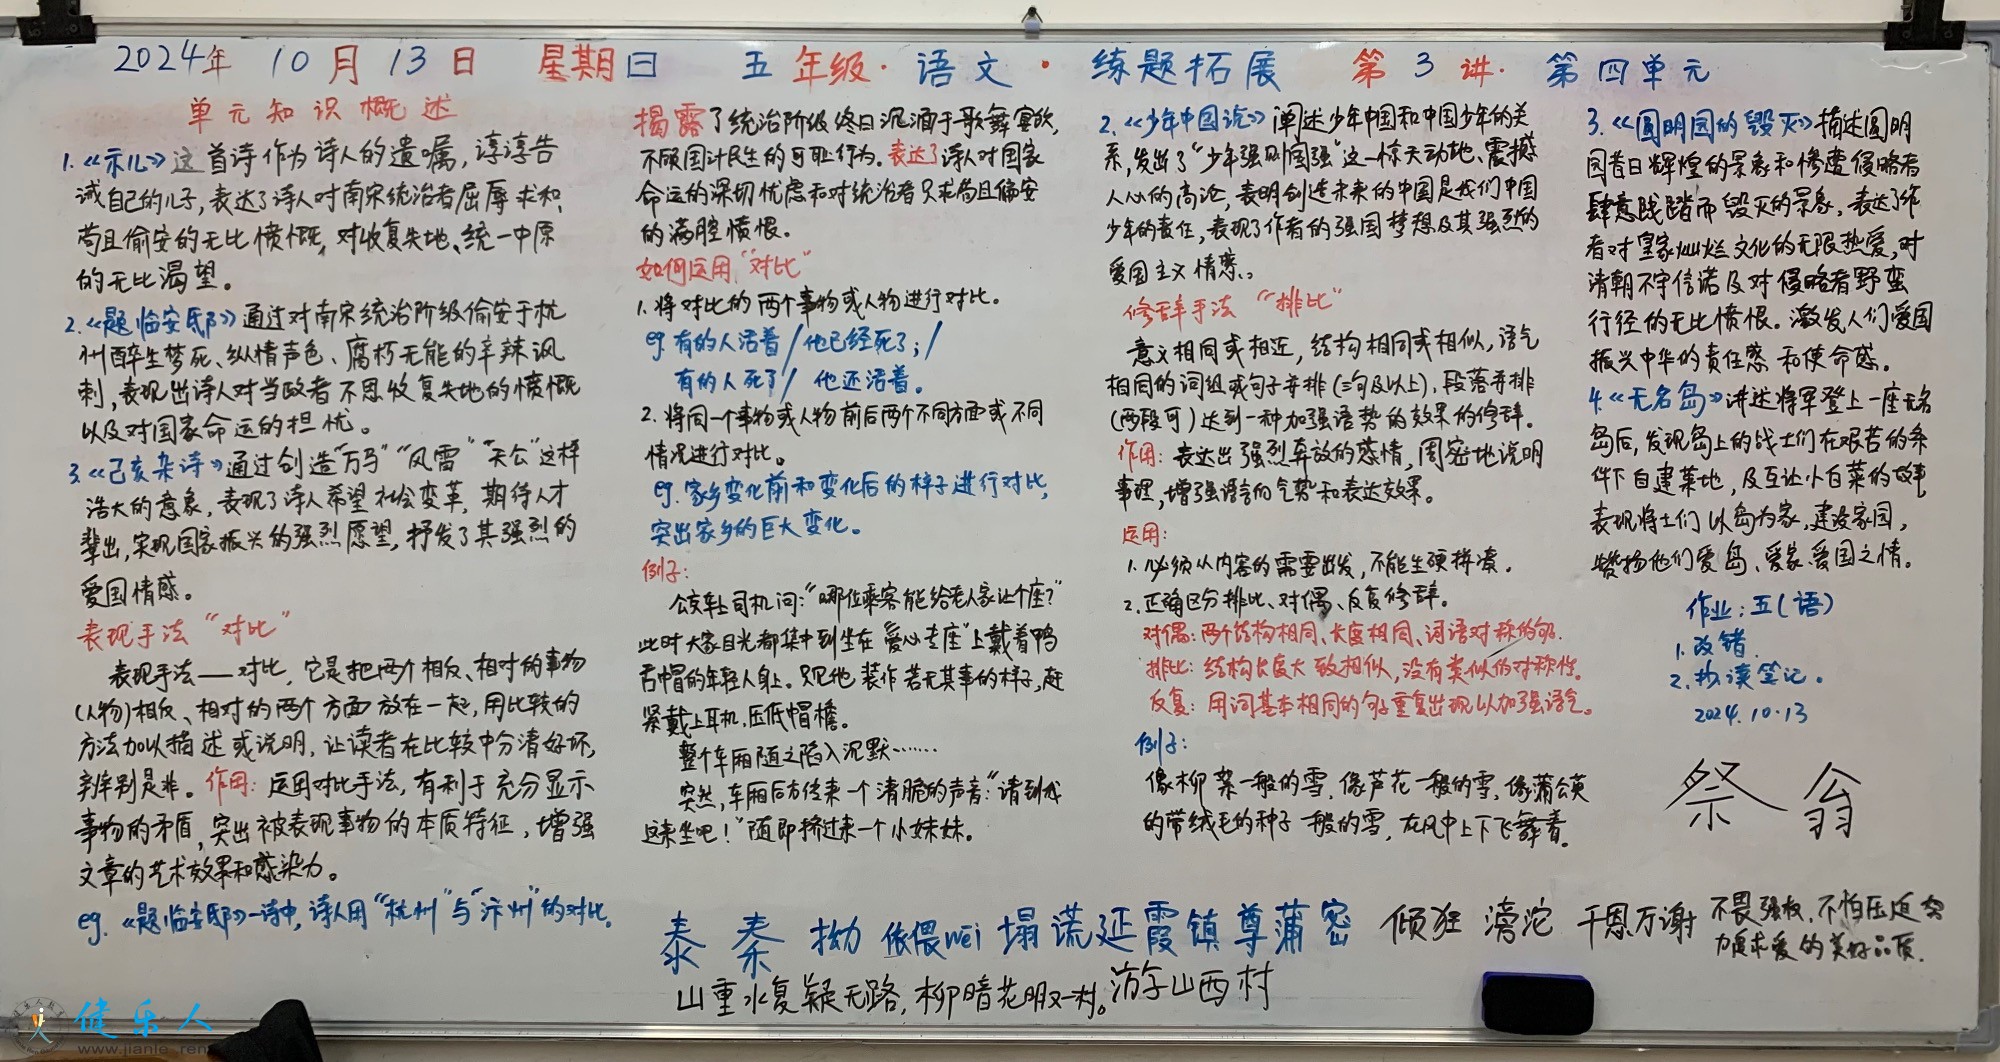 2024年 10月13日 星期日 五年级·语文·练题拓展 第3讲·第四单元
单元知识概述
1.《示儿》这首诗作为诗人的遗嘱，谆谆告
诫自己的儿子，表达了诗人对南宋统治者屈辱求和、
苟且偷安的无比愤慨，对收复失地、统一中原
的无比渴望。
2.《题临安邸》通过对南宋统治阶级偷安于杭
州醉生梦死、纵情声色、腐朽无能的辛辣讽
刺，表现出诗人对当政者不思收复失地的愤慨
以及对国家命运的担忧。
3.《己亥杂诗》通过创造“万马”“风雷”“天公”这样
浩大的意象，表现了诗人希望社会变革，期待人才
辈出，实现国家振兴的强烈愿望，抒发了其强烈的
爱国情感。
表现手法“对比”
表现手法——对比，它是把两个相反、相对的事物
(人物)相反、相对的两个方面放在一起，用比较的
方法加以描述或说明，让读者在比较中分清好坏，
辨别是非。作用：运用对比手法，有利于充分显示
事物的矛盾，突出被表现事物的本质特征，增强
文章的艺术效果和感染力。
eg.《题临安邸》一诗中，诗人用“杭州”与“汴州”的对比，
揭露了统治阶级终日沉湎于歌舞宴饮，
不顾国计民生的可耻行为。表达了诗人对国家
命运的深切忧虑和对统治者只求苟且偏安
的满腔愤恨。
如何运用“对比”
1.将对比的两个事物或人物进行对比。
eg.有的人活着/他已经死了；/
有的人死了/他还活着。
2.将同一个事物或人物前后两个不同方面或不同
情况进行对比。
eg.家乡变化前和变化后的样子进行对比，
突出家乡的巨大变化。
例子：
公交车上司机问：“哪位乘客能给老人家让个座？”
此时大家目光都集中到坐在“爱心专座”上戴着鸭
舌帽的年轻人身上。只见他装作若无其事的样子，赶
紧戴上耳机，压低帽檐。
整个车厢随之陷入沉默……
突然，车厢后方传来一个清脆的声音：“请到我
这来坐吧！”随即挤过来一个小妹妹。
2.《少年中国说》阐述少年中国和中国少年的关
系，发出了“少年强则国强”这一惊天动地、震撼
人心的高论，表明创造未来的中国是我们中国
少年的责任，表现了作者的强国梦想及其强烈的
爱国主义情感。
修辞手法“排比”
意义相同或相近，结构相同或相似，语气
相同的词组或句子并排(三句及以上)，段落并排
(两段可)达到一种加强语势的效果的修辞。
作用：表达出强烈奔放的感情，周密地说明
事理，增强语言的气势和表达效果。
运用：
1.必须从内容的需要出发，不能生硬拼凑。
2.正确区分排比、对偶、反复修辞。
对偶：两个结构相同、长度相同、词语对称的句.
排比：结构长度大致相似，没有类似的对称性。
反复：用词基本相同的句子重复出现以加强语气。
例子：
像柳絮一般的雪，像芦花一般的雪，像蒲公英
的带绒毛的种子一般的雪，在风中上下飞舞着。
3.《圆明园的毁灭》描述圆明
园昔日辉煌的景象和惨遭侵略者
肆意践踏而毁灭的景象，表达了作
者对皇家灿烂文化的无限热爱，对
清朝不守信诺及对侵略者野蛮
行径的无比愤恨。激发人们爱国
振兴中华的责任感和使命感。
4.《无名岛》讲述将军登上一座无名
岛后，发现岛上的战士们在艰苦的条
件下自建菜地，及互让小白菜的故事，
表现将士们以岛为家，建设家园，
赞扬他们爱岛、爱家、爱国之情。
作业：五(语)
1.改错.
2.抄读笔记。
2024.10.13
祭 翁
泰 秦 拗 依偎wēi 塌谎延霞镇尊蒲密 倾狂 滂沱 千恩万谢
不畏强权，不怕压迫
求爱的美好品质.
山重水复疑无路，柳暗花明又一村。游山西村
健乐人
www.jianle.ren